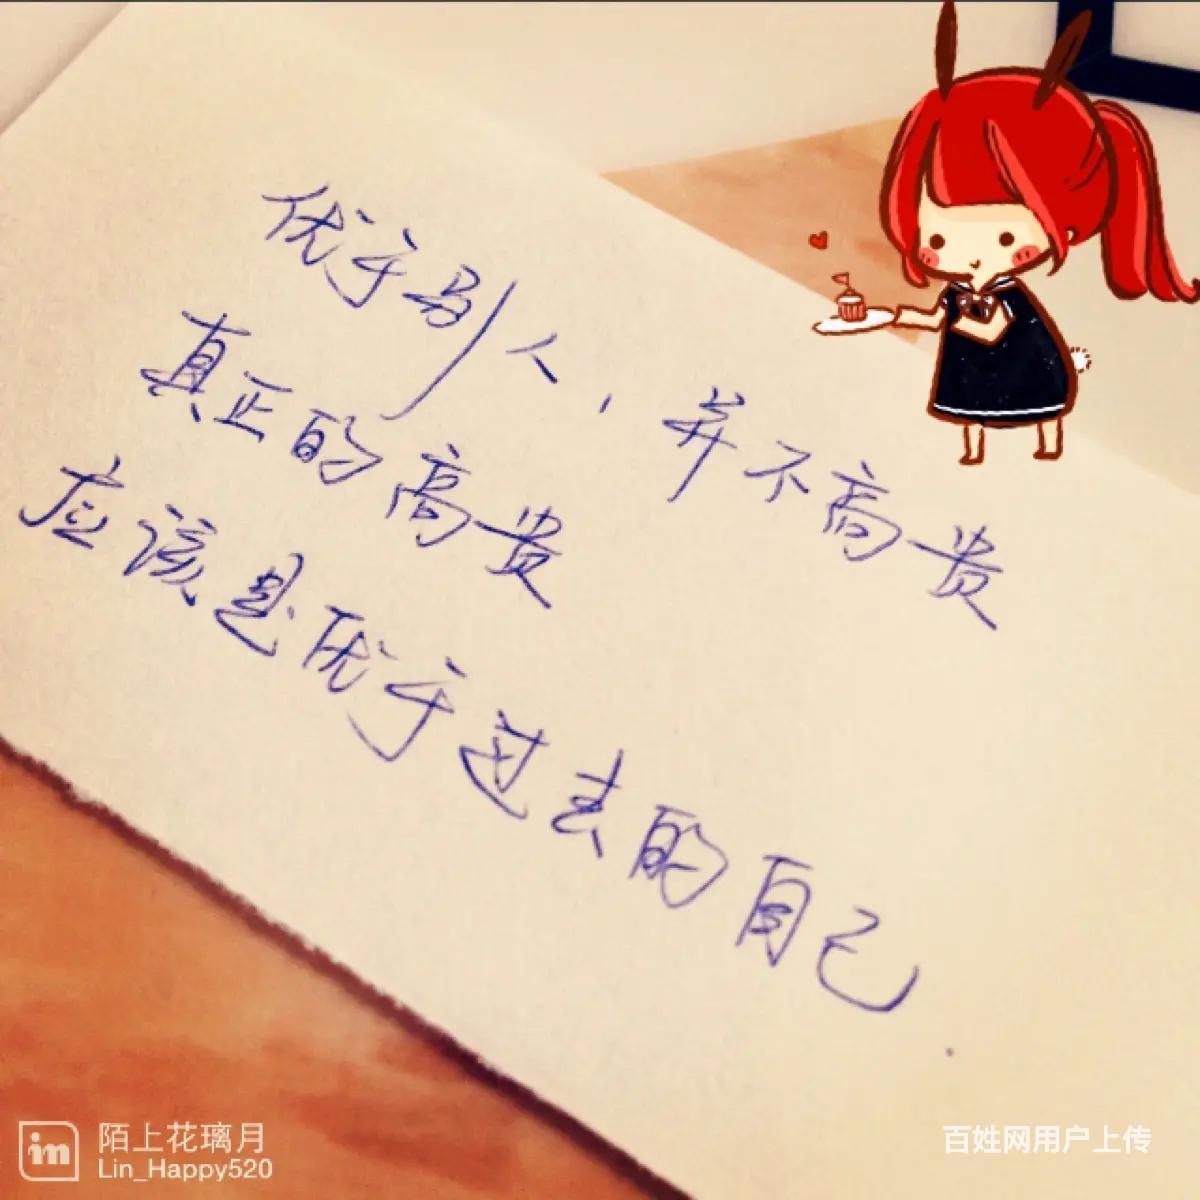 优于别人，并不高贵
真正的高贵
应该是优于过去的自己
陌上花璃月
Lin_Happy520
百姓网用户上传